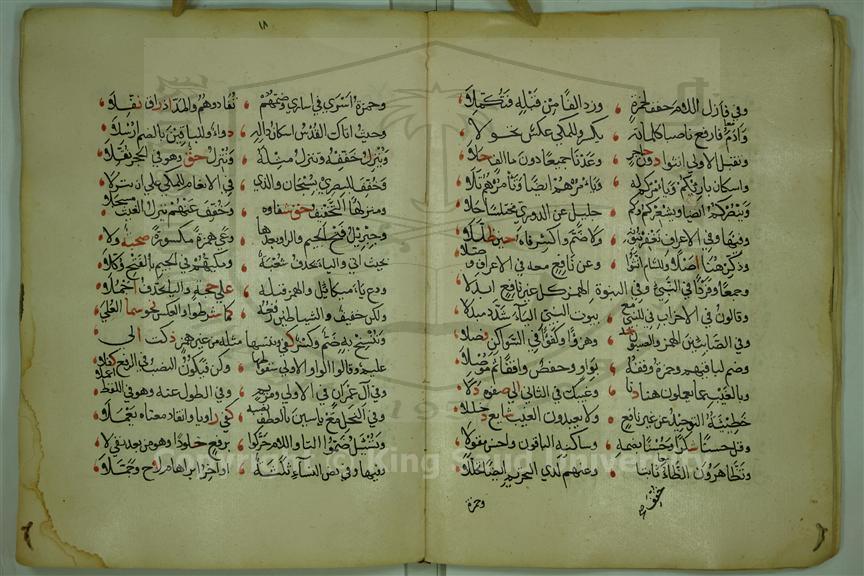 وفي فازل اللام خفف لحمزة وزد الفا من قبله فتكملا
وآدم فارفع ناصبا كلماته بكسر وللمكي عكس تحولا
وتقبل الاولى انثوا دون حاجز وعدنا جميعا دون ما الف حلا
واسكان بارئكم ويامركم له ويامرهم ايضا وتامرهم تلا
وينصركم ايضا ويشعركم وكم جليل عن الدوري مختلسا جلا
وفيها وفي الاعراف نغفر بنونه ولا ضم واكسر فاءه حين ظللا
وذكر هنا اصلا وللشام انثوا وعن نافع معه في الاعراف وصلا
وجمعا وفردا في النبيء وفي النبوة الهمز كل غير نافع ابدلا
وقالون في الاحزاب في للنبي مع بيوت النبي الياء شدد مبدلا
وفي الصابئين الهمز والصابئون خذ وهزؤا وكفؤا في السواكن فصلا
وضم لباقيهم وحمزة وقفه بواو وحفص واقفا ثم موصلا
وبالغيب عما يعملون هنا دنا وغيبك في الثاني الى صفوه دلا
خطيئته التوحيد عن غير نافع ولا يعبدون الغيب شايع دخللا
وقل حسنا شكرا وحسنا بضمه وساكنه الباقون واحسن مقولا
وتظاهرون الظاء خفف ثابتا وعنهم لدى التحريم ايضا تحللا
وحمزة
١٨
وحمزة اسرى في اسارى وضمهم تفادوهم والمد اذ راق نفلا
وحيث اتاك القدس اسكان داله دواء وللباقين بالضم ارسلا
وينزل خففه وتنزل مثله وننزل حق وهو في الحجر ثقلا
وخفف للبصري بسبحان والذي في الانعام للمكي على ان ينزلا
ومنزلها التخفيف حق شفاؤه وخفف عنهم ينزل الغيث مسجلا
وجبريل فتح الجيم والرا وبعدها وعى همزة مكسورة صحبة ولا
بحيث اتى والياء يحذف شعبة ومكيهم في الجيم بالفتح وكلا
ودع ياء ميكائيل والهمز قبله على حجة والياء يحذف اجملا
ولكن خفيف والشياطين رفعه كما شرطوا والعكس نحو سما العلى
وننسخ به ضم وكسر كفى وننسها مثله من غير همز ذكت الى
عليم وقالوا الواو الاولى سقوطها وكن فيكون النصب في الرفع كفلا
وفي آل عمران في الاولى ومريم وفي الطول عنه وهو في اللفظ اعملا
وفي النحل مع ياسين بالعطف نصبه كفى راويا وانقاد معناه يعملا
وتسئل ضموا التاء واللام حركوا برفع خلودا وهو من بعد نفي لا
وفيها وفي نص النساء ثلثة اواخر ابراهام لاح وجملا
Copyright © King Saud University